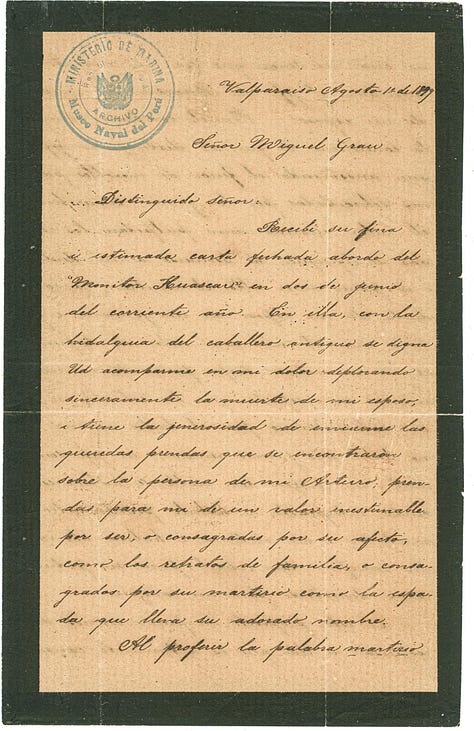 MINISTERIO DE MARINA
ARCHIVO
Museo Naval del Perú
Valparaiso Agosto 1º de 1879
Señor Miguel Grau
Distinguido señor:
Recibí su fina
i estimada carta fechada abordo del
"Monitor Huascar" en dos de junio
del corriente año. En illa, con la
hidalguia del caballero antiguo se digna
Ud acomparme en mi dolor deplorando
sinceramente la muerte de mi esposo,
i tiene la jenerosidad de enviarme las
queridas prendas que se encontraron
sobre la persona de mi Arturo, pren-
das para mi de un valor inestimable
por ser, o consagradas por su afecto,
como los retratos de familia, o consa-
gradas por su martirio como la espa-
da que lleva su adorado nombre.
Al proferir la palabra martirio